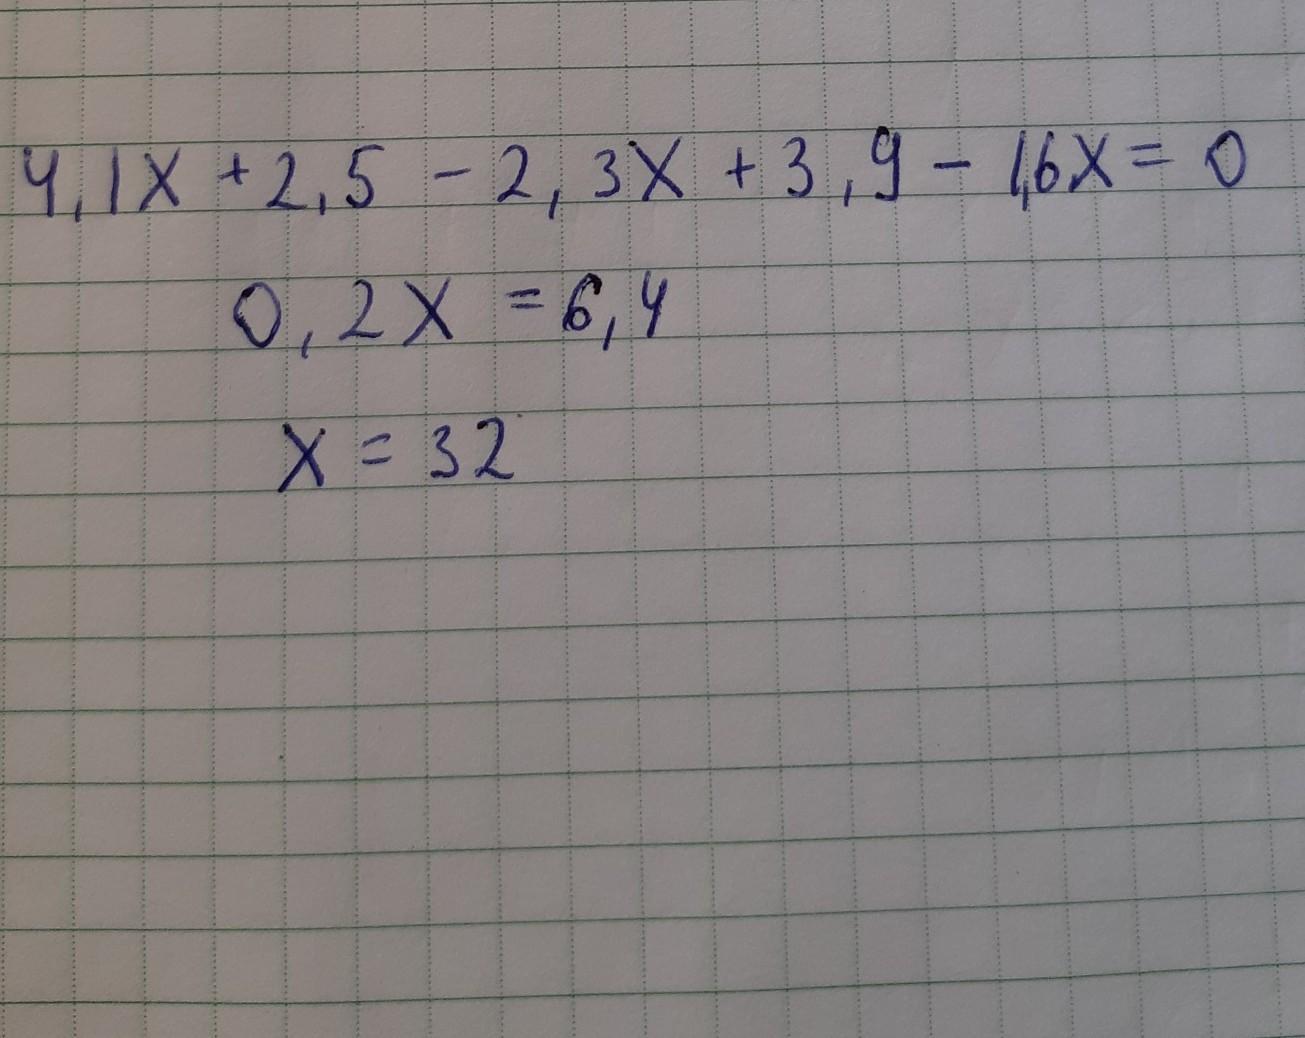 4,1x + 2,5 - 2,3x + 3,9 - 1,6x = 0
0,2x = 6,4
x = 32